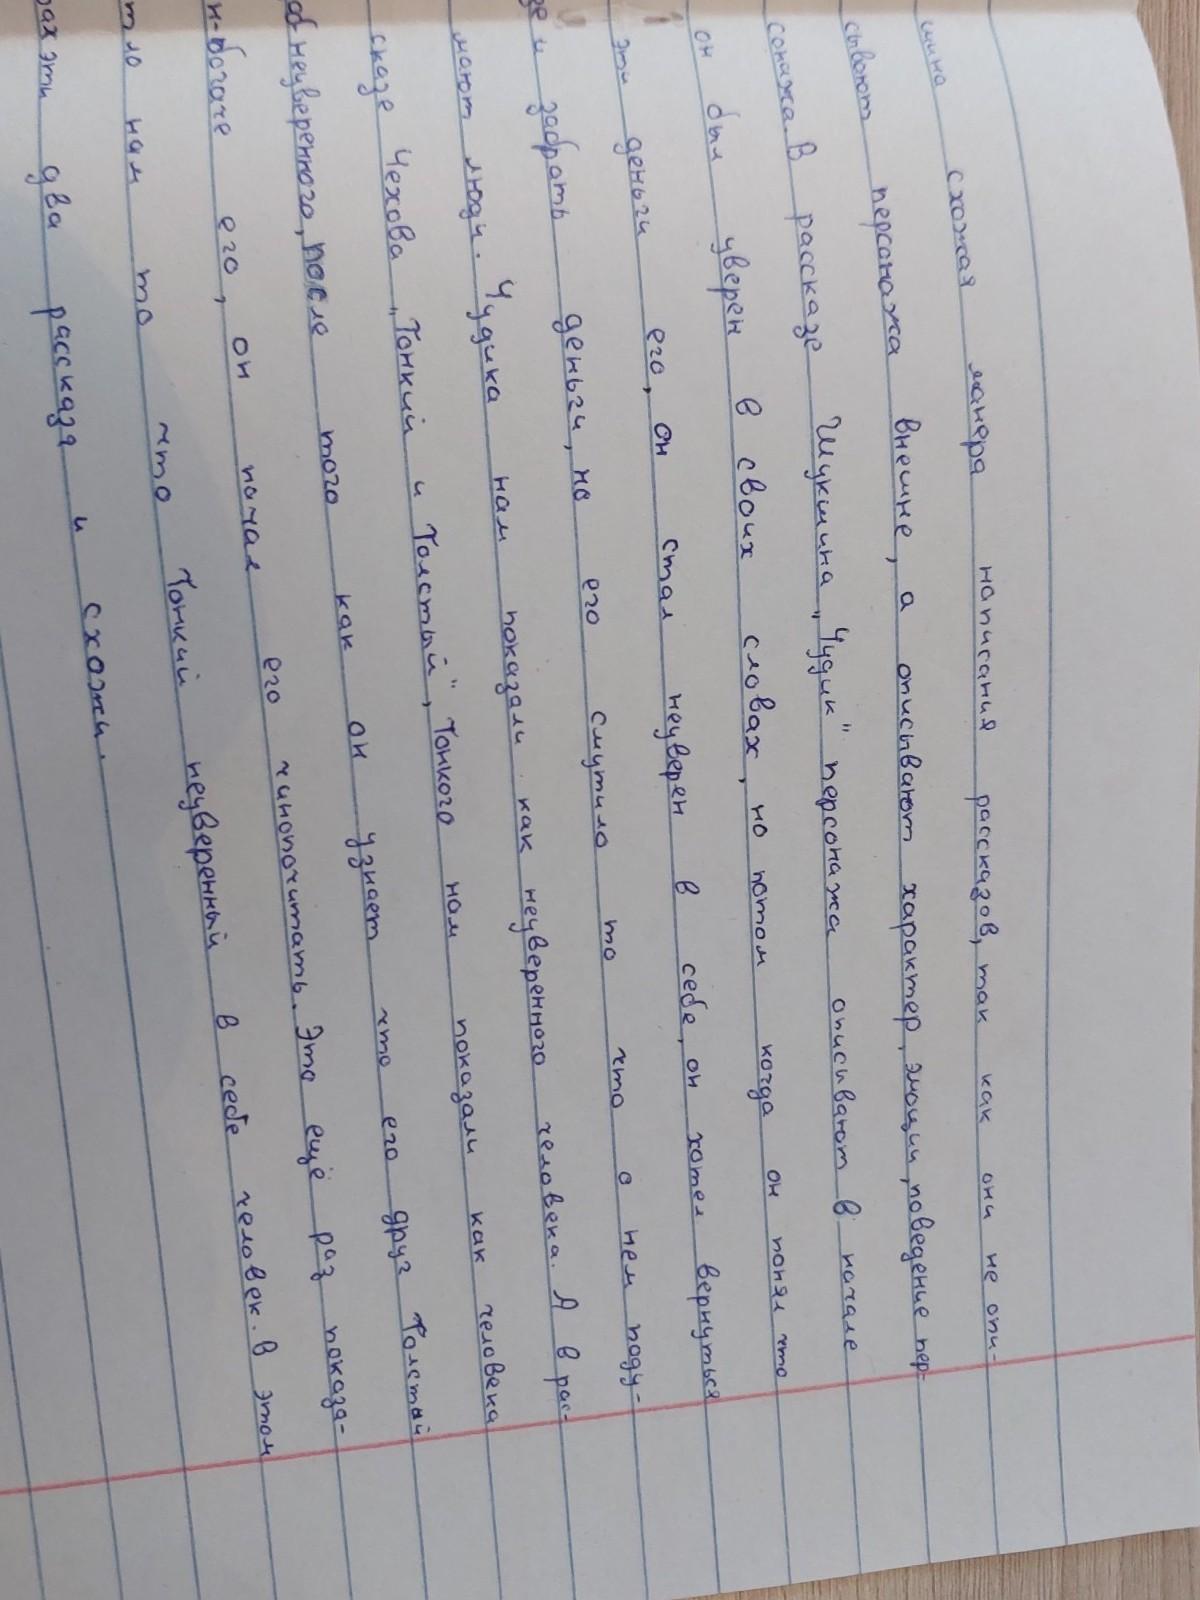 шина схожая манера написания рассказов, так как они не опи-
сывают персонажа внешне, а описывают характер, эмоции, поведение пер-
сонажа. В рассказе Шукшина „Чудик" персонажа описивают в начале
он был уверен в своих словах, но потом когда он понял что
эти деньги его, он стал неуверен в себе, он хотел вернуться
и забрать деньги, но его смутило то что о нем поду-
мают люди. Чудика нам показали как неуверенного человека. А в рас-
сказе Чехова „Тонкий и Толстый", Тонкого нам показали как человека
неуверенного, после того как он узнает что его друг Толстый
богаче его, он начал его чинопочитать. Это ещё раз показа-
ло нам то что Тонкий неуверенный в себе человек. В этом
эти два рассказа и схожи.